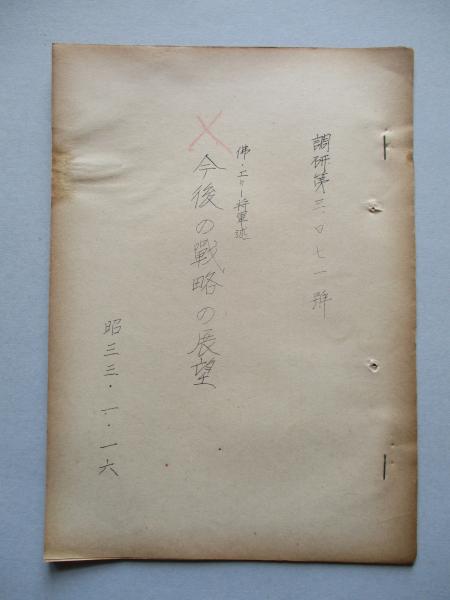 調研第三〇七一號
佛・エリー将軍述
今後の戰略の展望
昭三三・一・一六